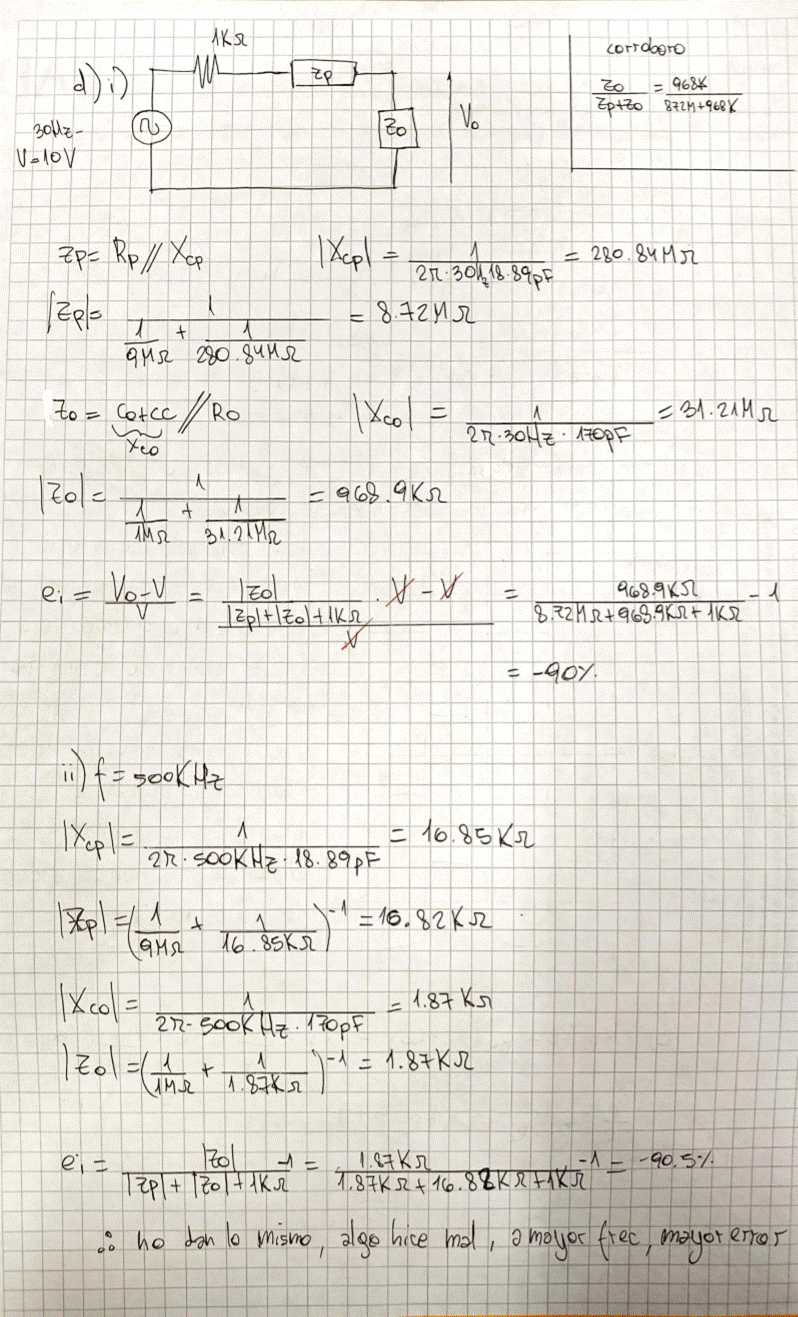 d) i)
1KΩ
Zp
Zo
Vo
30Hz-
V=10V
corroboro
Zo/(Zp+Zo) = 968K/(872M+968K)
Zp = Rp // Xcp
|Xcp| = 1/(2π·30Hz·18.89pF) = 280.84MΩ
|Zp| = 1/(1/9MΩ + 1/280.84MΩ) = 8.72MΩ
Zo = Co+Cc // Ro
Xco
|Xco| = 1/(2π·30Hz·170pF) = 31.21MΩ
|Zo| = 1/(1/1MΩ + 1/31.21MΩ) = 968.9KΩ
ei = (Vo-V)/V = (|Zo|/(|Zp|+|Zo|+1KΩ) · V - V)/V = 968.9KΩ/(8.72MΩ+968.9KΩ+1KΩ) - 1
= -90%.
ii) f = 500KHz
|Xcp| = 1/(2π·500KHz·18.89pF) = 16.85KΩ
|Zp| = (1/9MΩ + 1/16.85KΩ)^-1 = 16.82KΩ
|Xco| = 1/(2π·500KHz·170pF) = 1.87KΩ
|Zo| = (1/1MΩ + 1/1.87KΩ)^-1 = 1.87KΩ
ei = |Zo|/(|Zp|+|Zo|+1KΩ) -1 = 1.87KΩ/(1.87KΩ+16.82KΩ+1KΩ) -1 = -90.5%.
∴ no dan lo mismo, algo hice mal, a mayor frec, mayor error